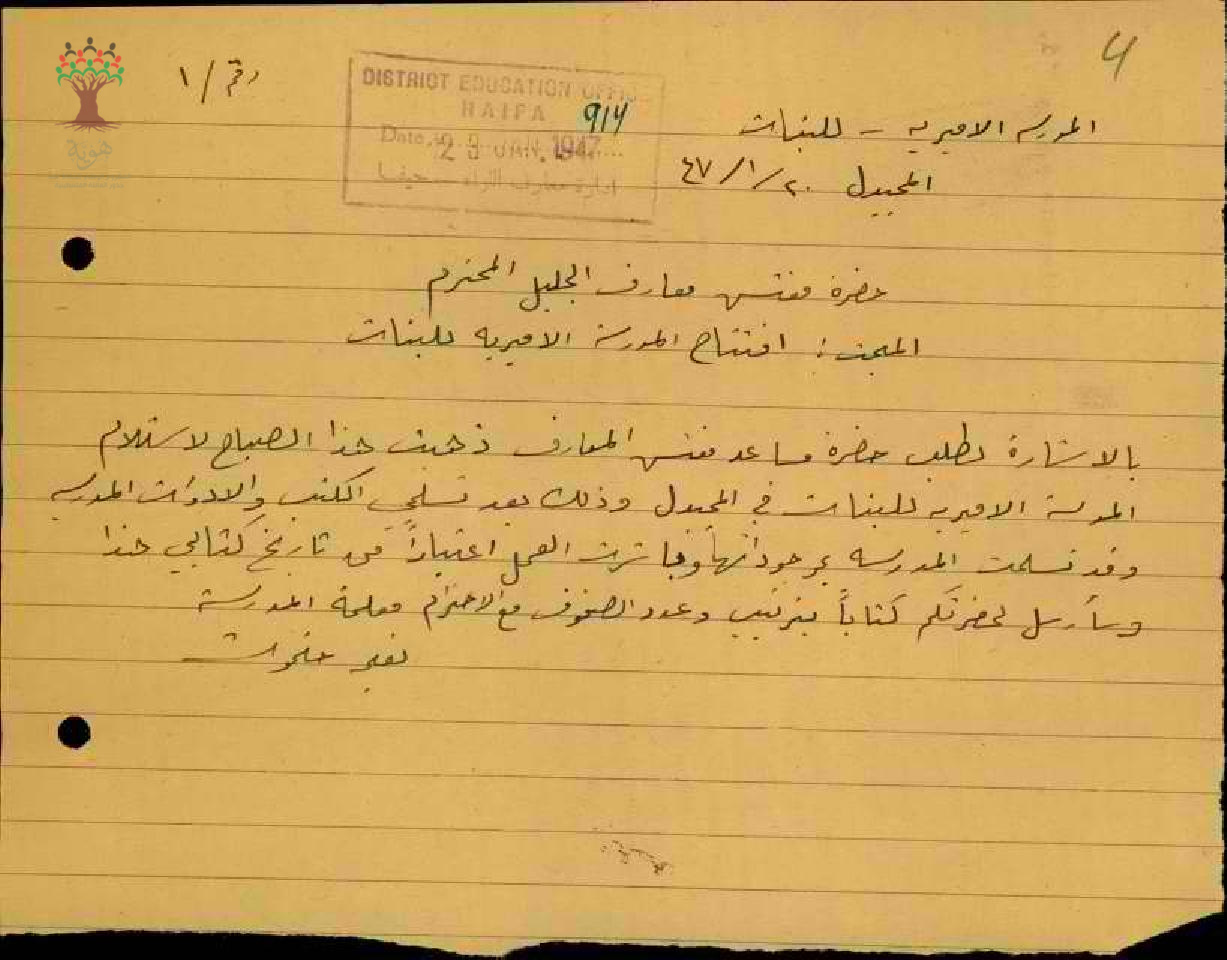 4
رقم / ١
DISTRICT EDUCATION OFFICE
HAIFA
914
Date, 23 JAN. 1947
ادارة معارف اللواء - حيفا
هوية
المدرسه الاميريه - للبنات
المجيدل ٢٠/١/٤٧
حضرة مفتش معارف الجليل المحترم
المبحث : افتتاح المدرسة الاميريه للبنات
بالاشارة لطلب حضرة مساعد مفتش المعارف ذهبت هذا الصباح لاستلام
المدرسة الاميريه للبنات في المجيدل وذلك بعد تسلمي الكتب والادوات المدرسيه
وقد تسلمت المدرسه بموجوداتها وباشرت العمل اعتباراً من تاريخ كتابي هذا
وسأرسل لحضرتكم كتاباً بترتيب وعدد الصفوف مع الاحترام معلمة المدرسة